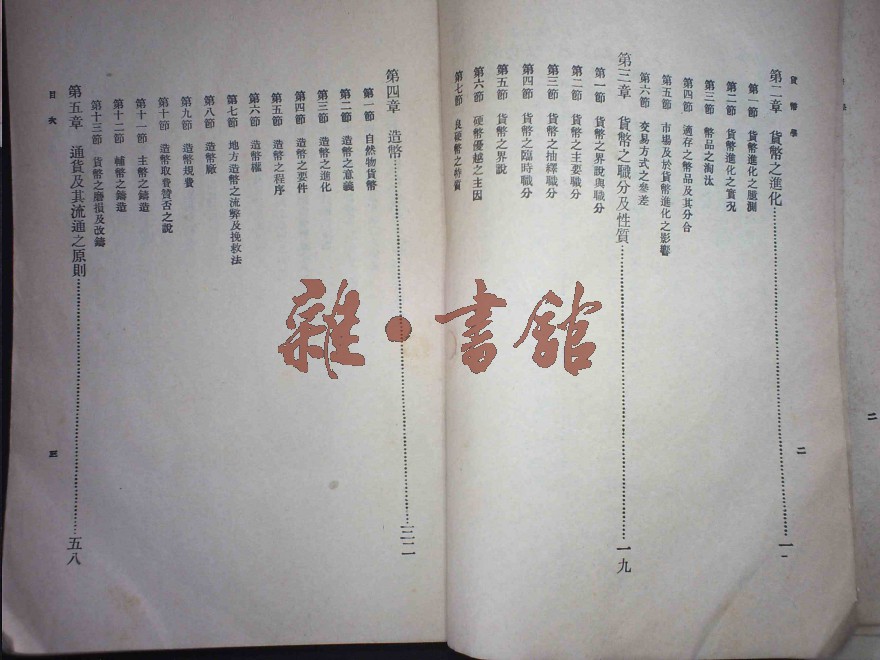 貨幣學
二
第二章 貨幣之進化…………一一
第一節 貨幣進化之臆測
第二節 貨幣進化之實況
第三節 幣品之淘汰
第四節 適存之幣品及其分合
第五節 市場及於貨幣進化之影響
第六節 交易方式之參差
第三章 貨幣之職分及性質…………一九
第一節 貨幣之界說與職分
第二節 貨幣之主要職分
第三節 貨幣之抽繹職分
第四節 貨幣之臨時職分
第五節 貨幣之界說
第六節 硬幣優越之主因
第七節 良硬幣之特質
第四章 造幣…………三二
第一節 自然物貨幣
第二節 造幣之意義
第三節 造幣之進化
第四節 造幣之要件
第五節 造幣之程序
第六節 造幣權
第七節 地方造幣之流弊及挽救法
第八節 造幣廠
第九節 造幣規費
第十節 造幣取費贊否之說
第十一節 主幣之鑄造
第十二節 輔幣之鑄造
第十三節 貨幣之磨損及改鑄
第五章 通貨及其流通之原則…………五八
目次
三
二
雜·書館